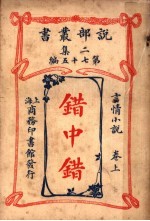 說部叢書
二集
第七十五編
言情小說
卷上
錯中錯
上海
商務印書館發行